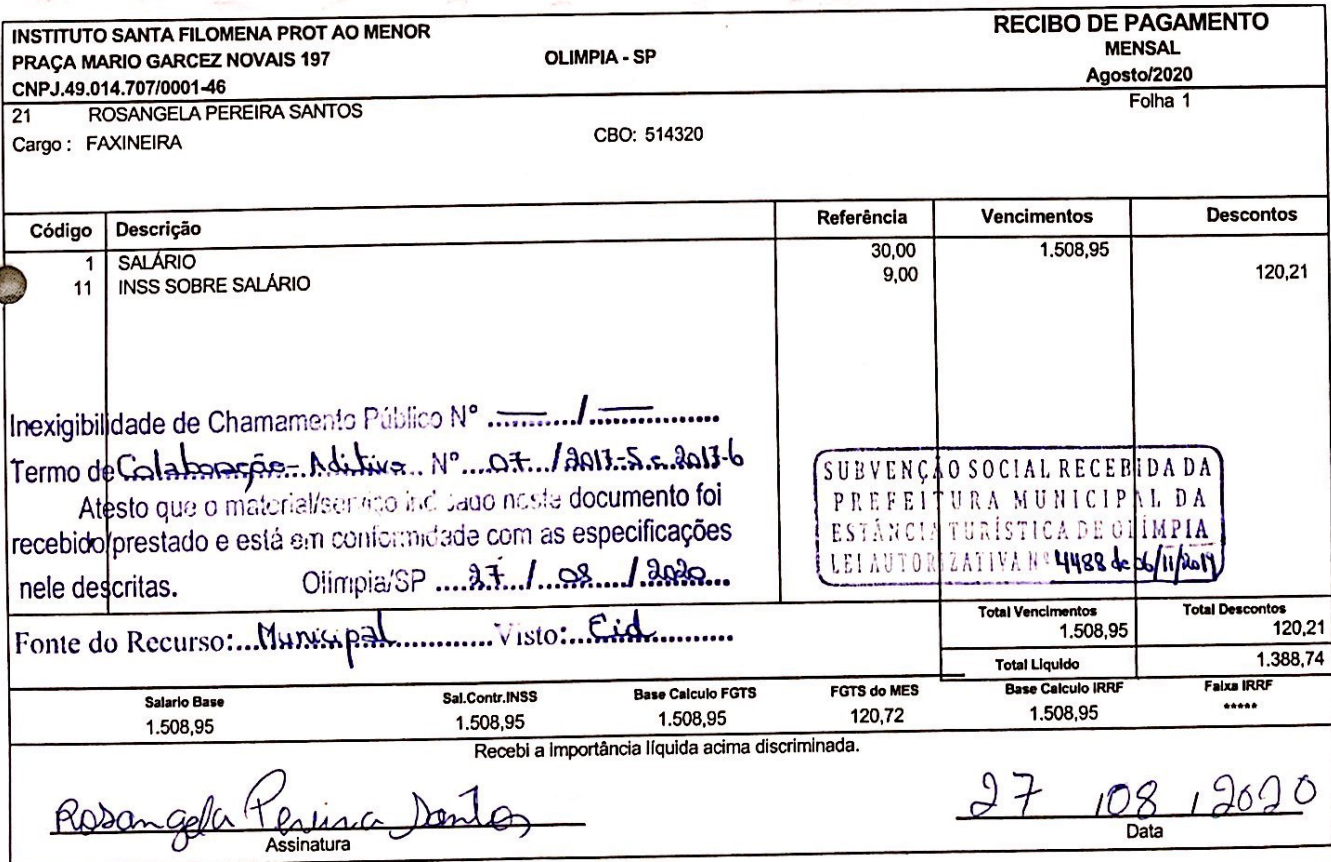 INSTITUTO SANTA FILOMENA PROT AO MENOR
RECIBO DE PAGAMENTO
PRAÇA MARIO GARCEZ NOVAIS 197 OLIMPIA - SP
MENSAL
CNPJ.49.014.707/0001-46
Agosto/2020
21 ROSANGELA PEREIRA SANTOS
Folha 1
Cargo : FAXINEIRA CBO: 514320
Código Descrição Referência Vencimentos Descontos
1 SALÁRIO 30,00 1.508,95
11 INSS SOBRE SALÁRIO 9,00 120,21
Inexigibilidade de Chamamento Público Nº ........../................
Termo de Colaboração - Aditivo Nº 07 /2017-5 e 2017-6
Atesto que o material/serviço indicado neste documento foi
recebido/prestado e está em conformidade com as especificações
nele descritas. Olímpia/SP 27 / 08 / 2020
SUBVENÇÃO SOCIAL RECEBIDA DA
PREFEITURA MUNICIPAL DA
ESTÂNCIA TURÍSTICA DE OLÍMPIA
LEI AUTORIZATIVA Nº 4488 de 06/11/2019
Fonte do Recurso: Municipal Visto: Cid
Total Vencimentos Total Descontos
1.508,95 120,21
Total Liquido 1.388,74
Salario Base Sal.Contr.INSS Base Calculo FGTS FGTS do MES Base Calculo IRRF Faixa IRRF
1.508,95 1.508,95 1.508,95 120,72 1.508,95 *****
Recebi a importância líquida acima discriminada.
Rosangela Pereira Santos 27 / 08 / 2020
Assinatura Data